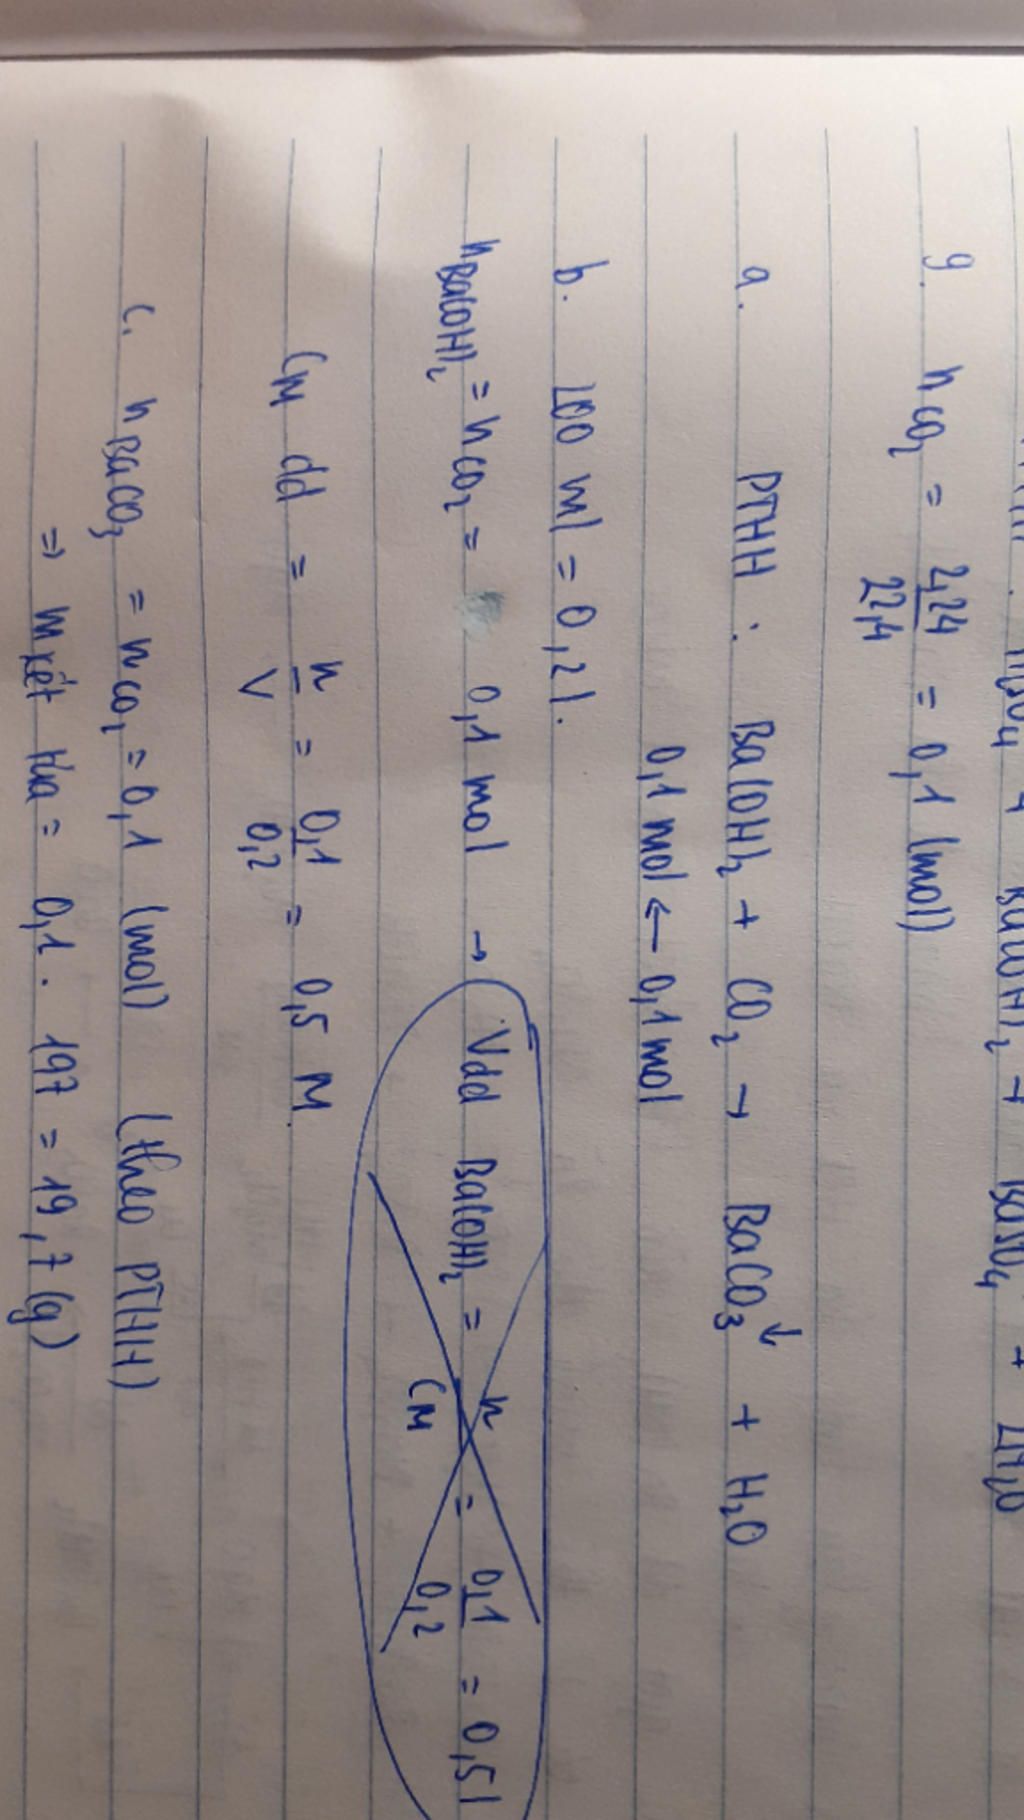 H₂SO₄ + Ba(OH)₂ → BaSO₄ + 2H₂O
9. nCO₂ = 2,24/22,4 = 0,1 (mol)
a. PTHH : Ba(OH)₂ + CO₂ → BaCO₃↓ + H₂O
0,1 mol ← 0,1 mol
b. 200 ml = 0,2 l.
nBa(OH)₂ = nCO₂ = 0,1 mol → Vdd Ba(OH)₂ = n/CM = 0,1/0,2 = 0,5 l
CM dd = n/V = 0,1/0,2 = 0,5 M
c. nBaCO₃ = nCO₂ = 0,1 (mol) (theo PTHH)
⇒ m kết tủa = 0,1 . 197 = 19,7 (g)